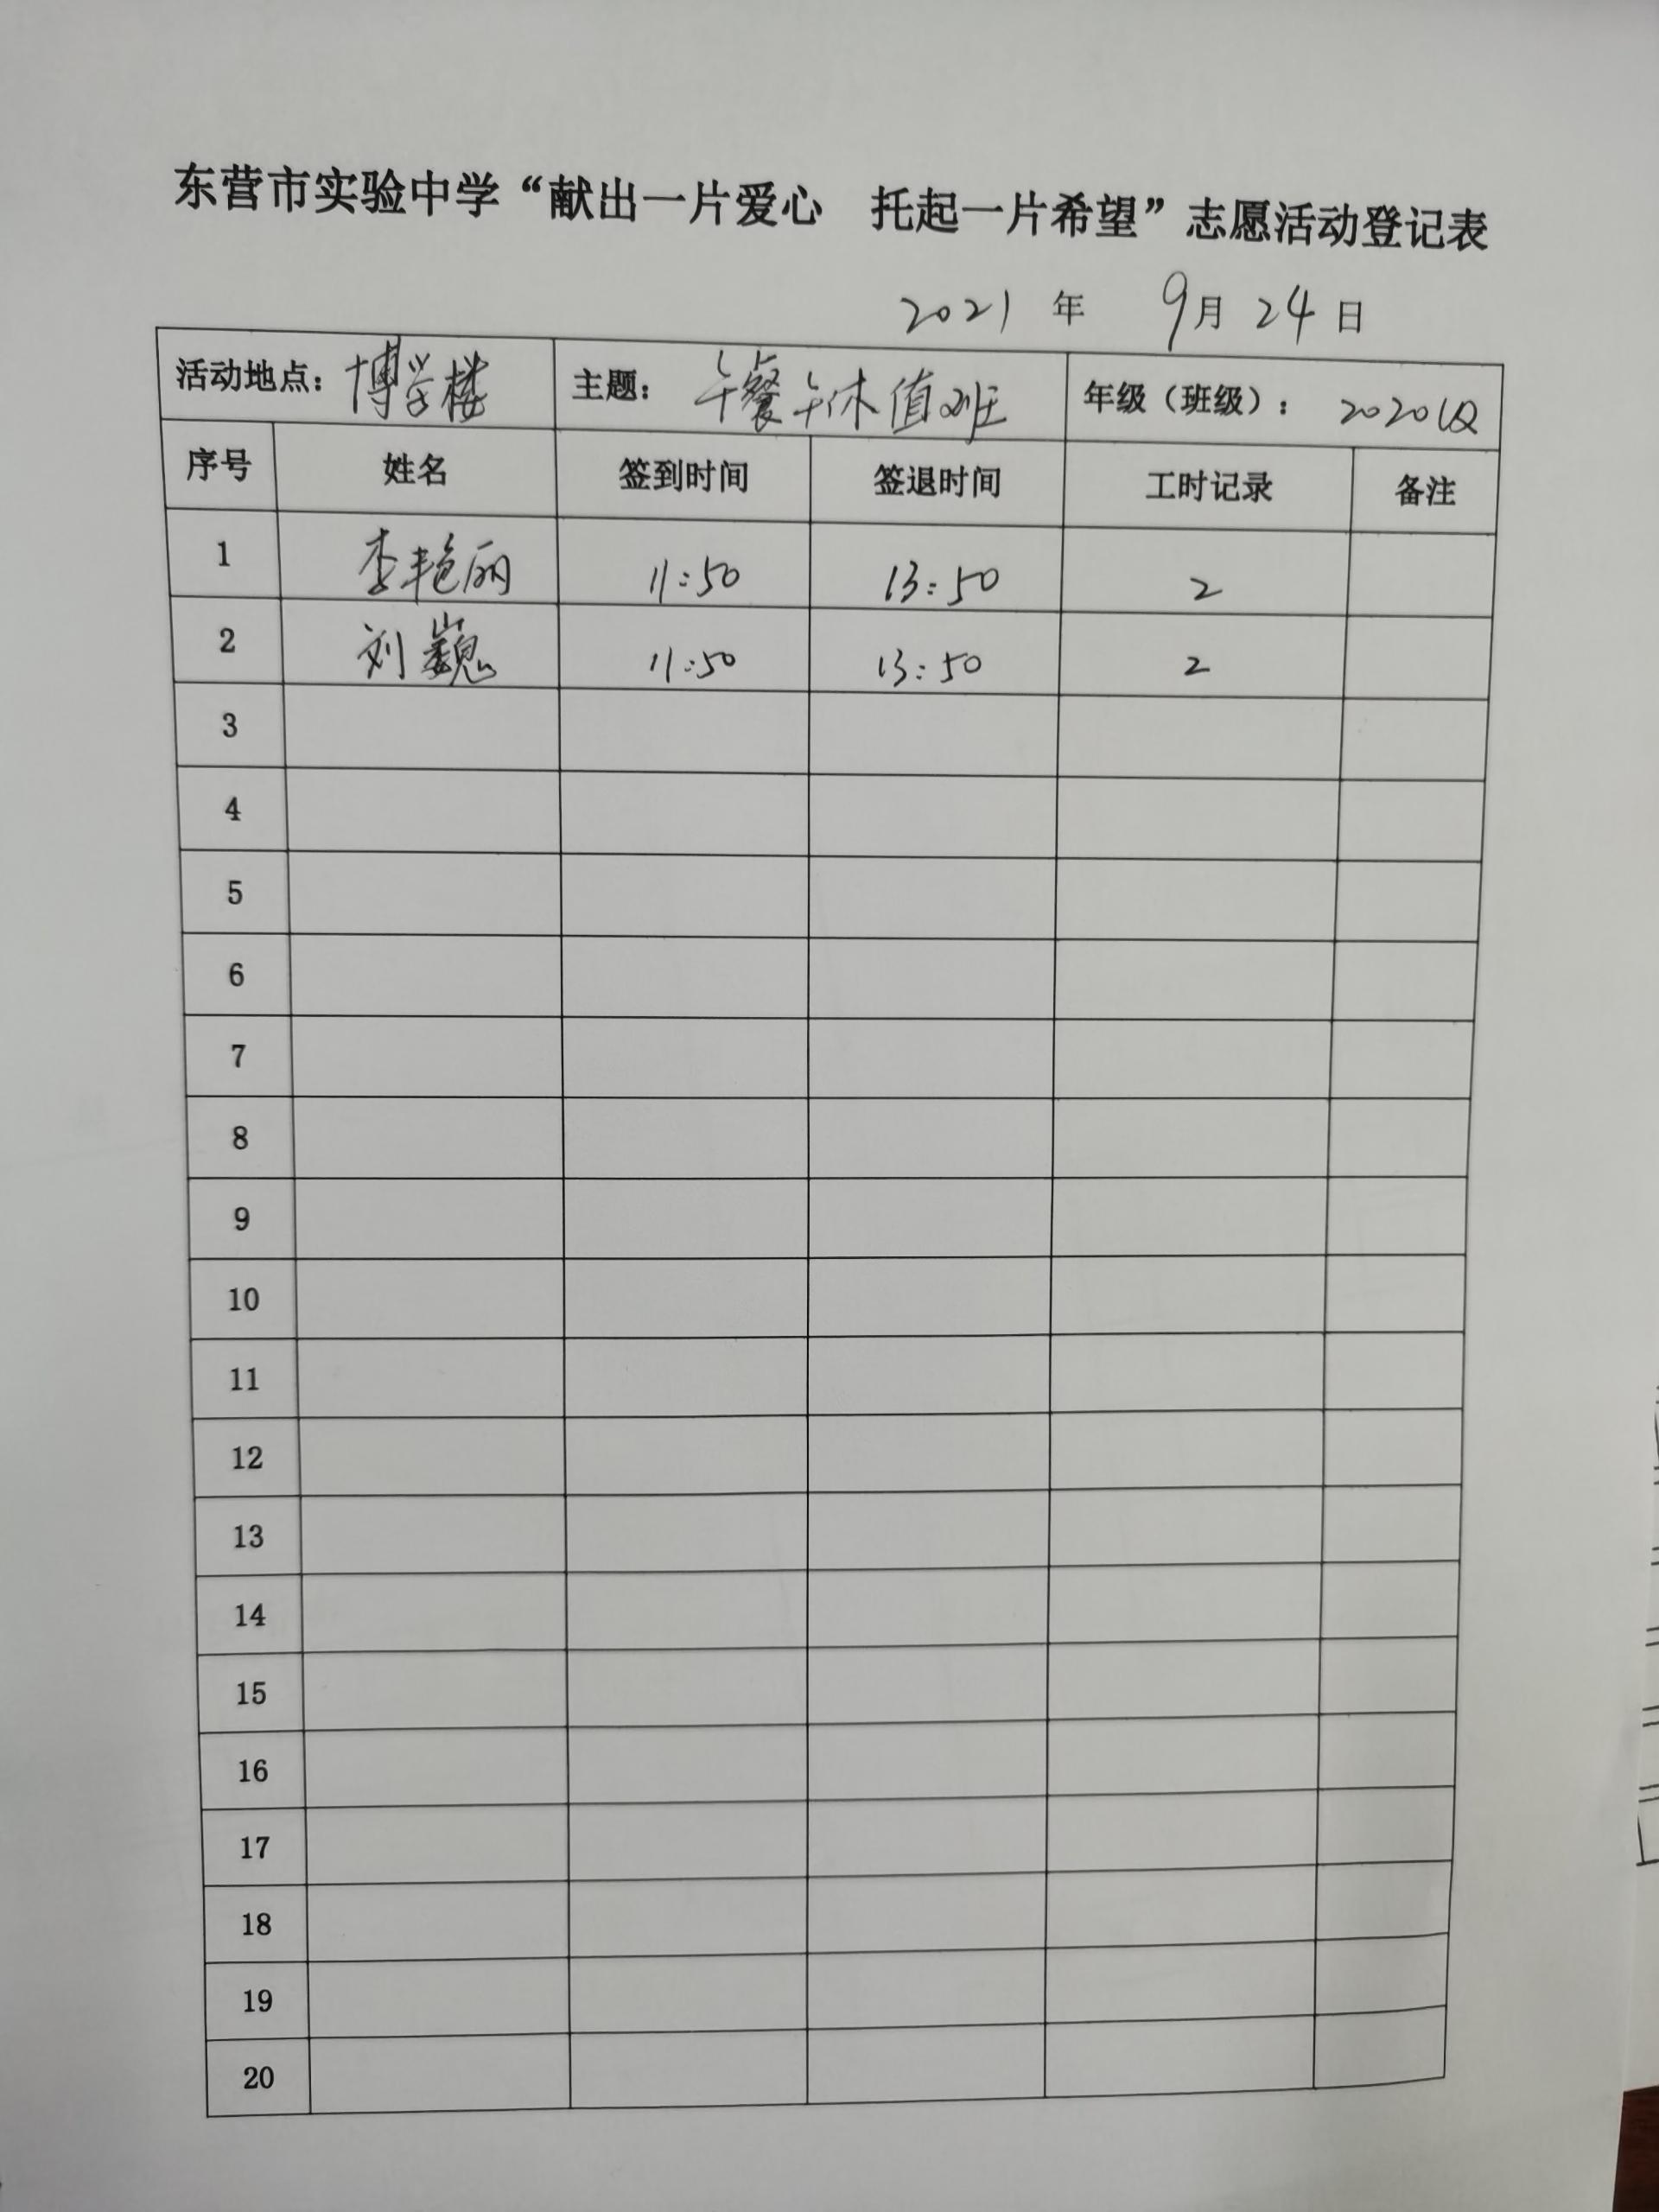 东营市实验中学“献出一片爱心 托起一片希望”志愿活动登记表
2021 年 9月 24 日
活动地点：博学楼 主题：午餐午休值班 年级（班级）：2020级
序号 姓名 签到时间 签退时间 工时记录 备注
1 李艳丽 11:50 13:50 2
2 刘巍 11:50 13:50 2
3
4
5
6
7
8
9
10
11
12
13
14
15
16
17
18
19
20